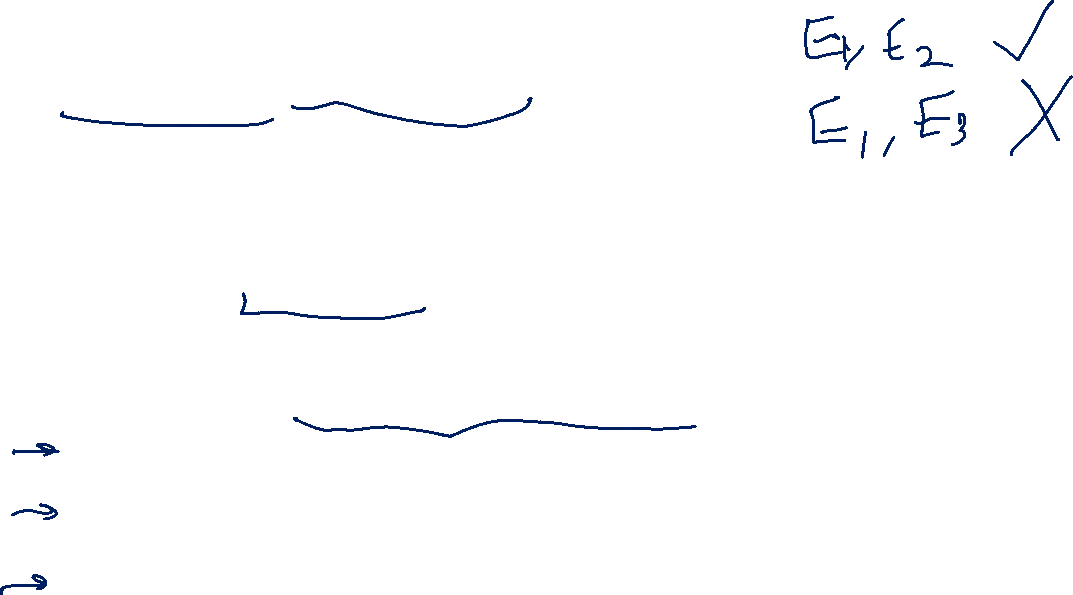 E1, E2 ✓
E1, E3 X